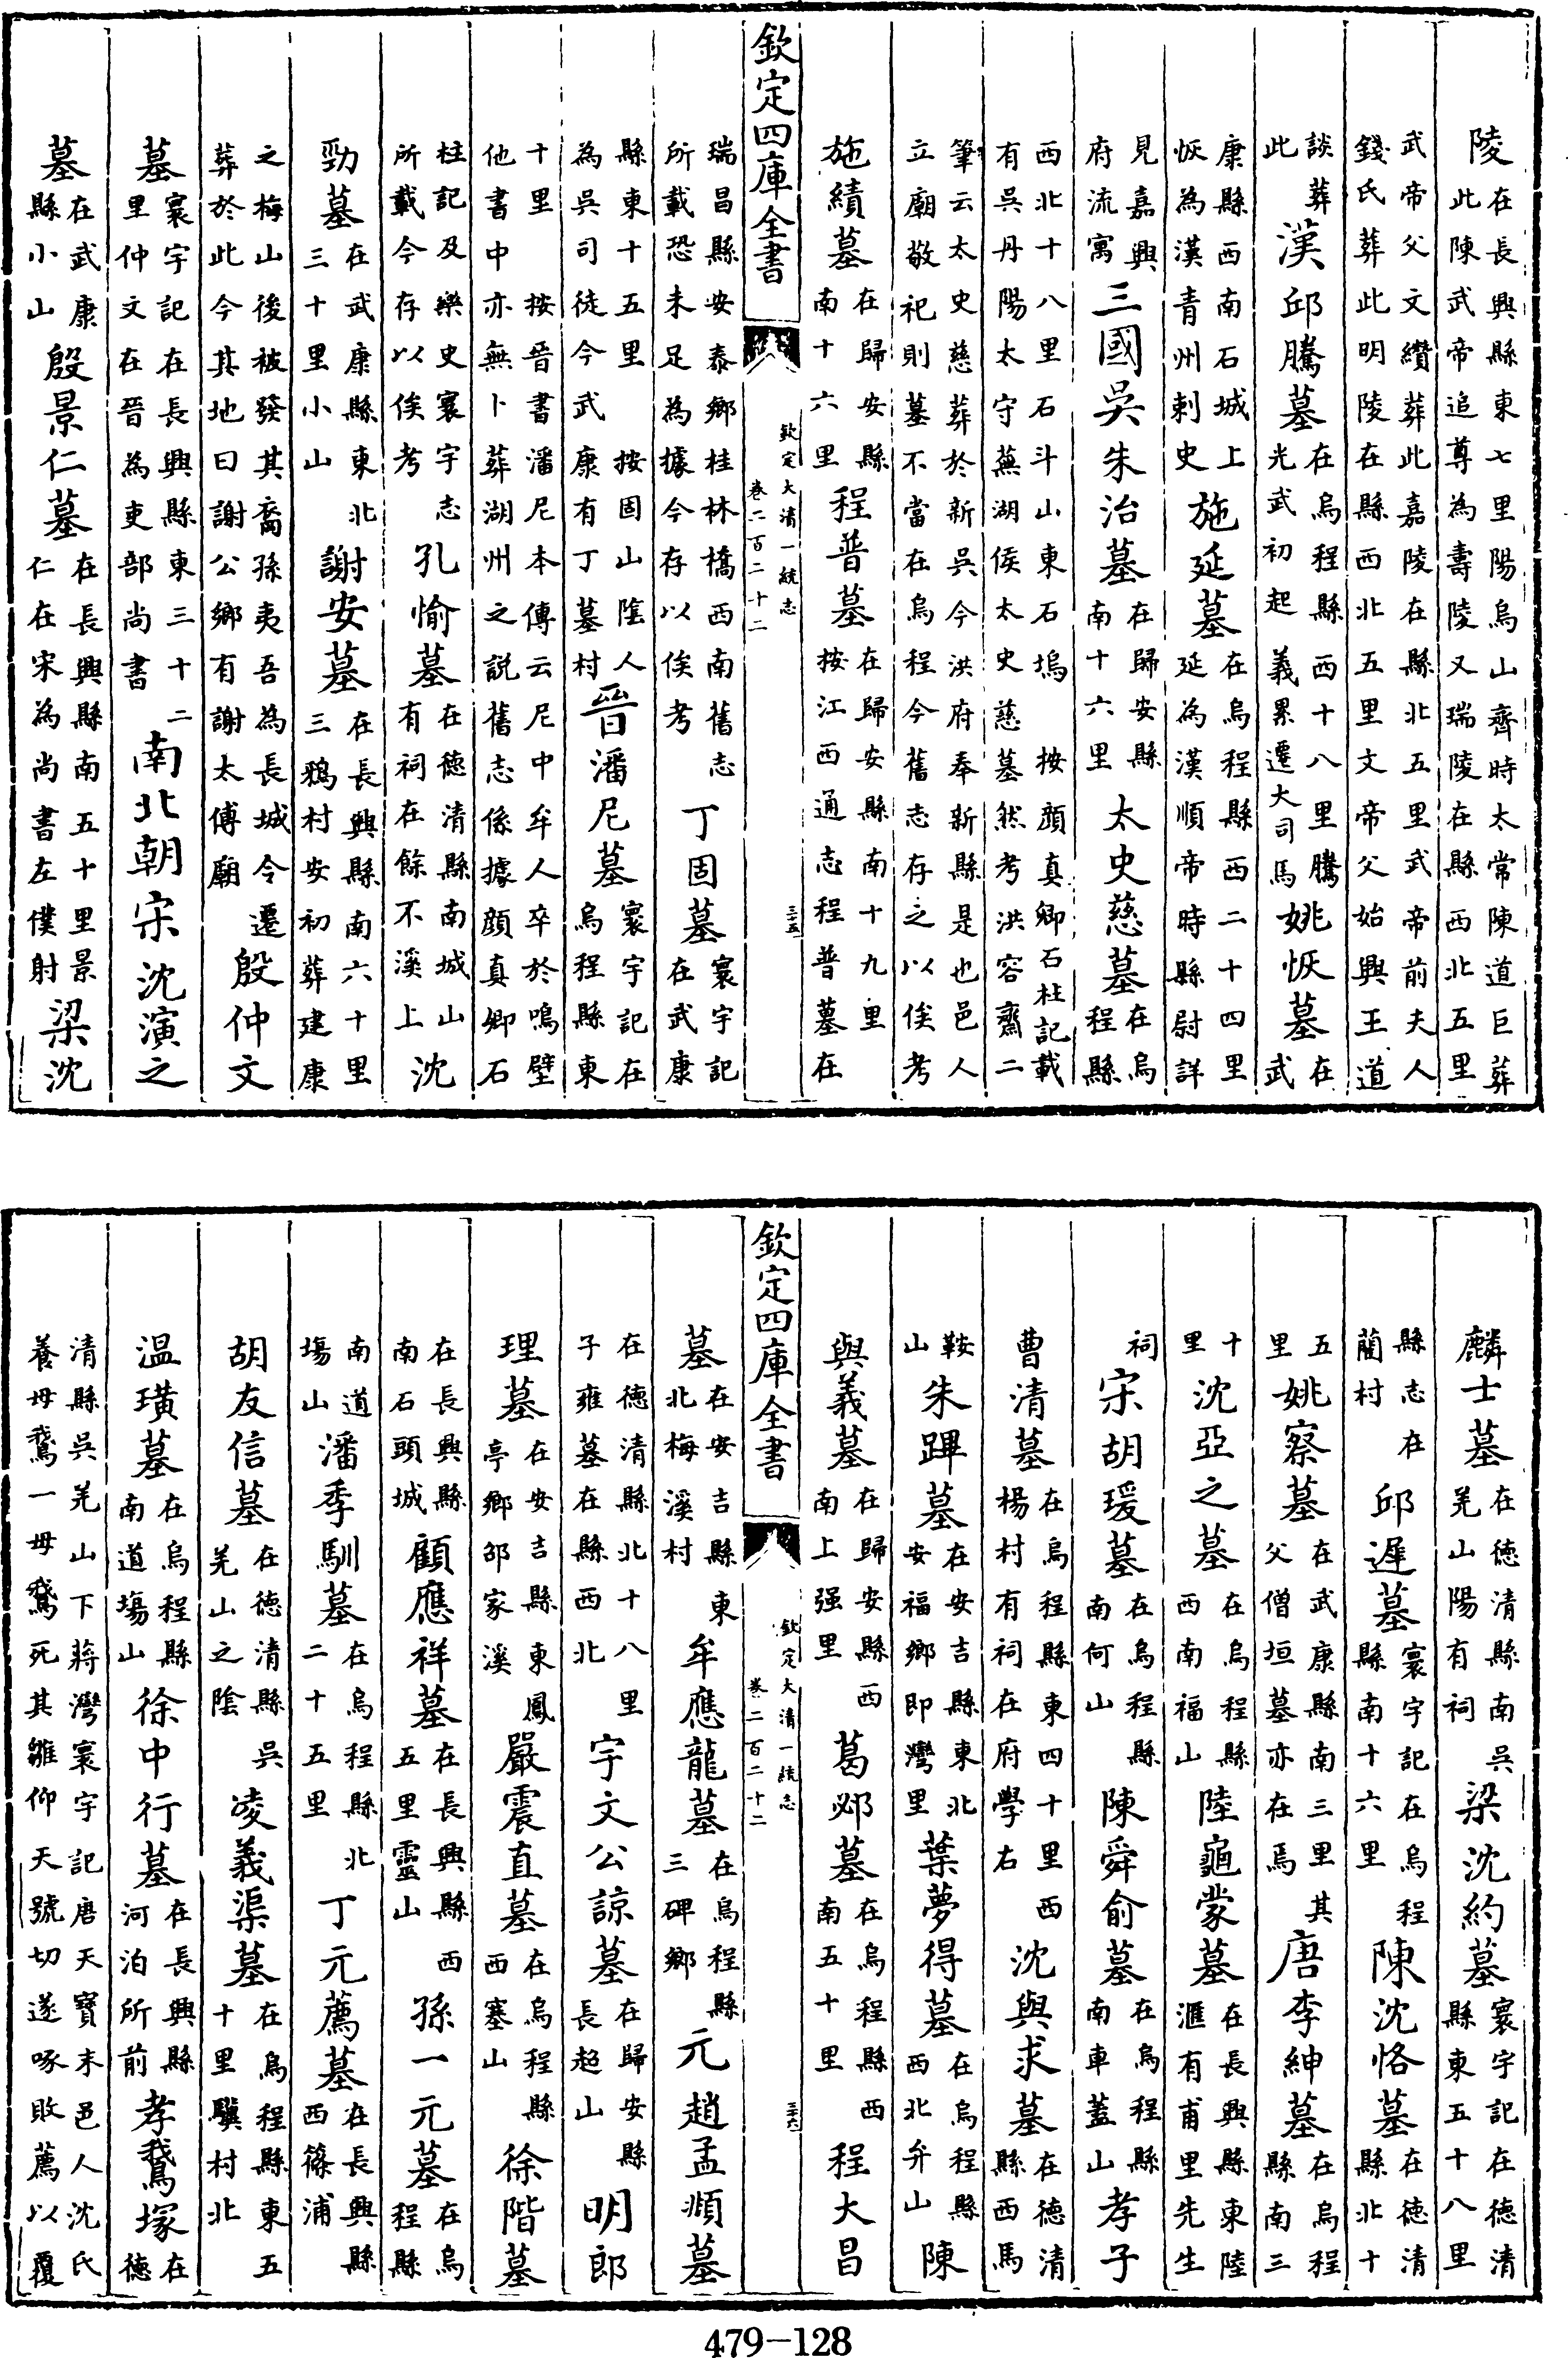 陵在長興縣東七里陽烏山齊時太常陳道巨葬此陳武帝追尊為壽陵又瑞陵在縣西北五里
武帝父文纘葬此嘉陵在縣北五里武帝前夫人錢氏葬此明陵在縣西北五里文帝父始興王道
談葬此漢邱騰墓在烏程縣西十八里騰光武初起義累遷大司馬姚恢墓在武
康縣西南石城上恢為漢青州刺史施延墓在烏程縣西二十四里延為漢順帝時縣尉詳
見嘉興府流寓三國吳朱治墓在歸安縣南十六里太史慈墓在烏程縣
西北十八里石斗山東石塢按顔真卿石柱記載有吳丹陽太守蕪湖侯太史慈墓然考洪容齋二
筆云太史慈葬於新吳今洪府奉新縣是也邑人立廟敬祀則墓不當在烏程今舊志存之以俟考
施績墓在歸安縣南十六里程普墓在歸安縣南十九里按江西通志程普墓在
欽定四庫全書
欽定大清一統志
卷二百二十二
三五
瑞昌縣安泰鄉桂林橋西南舊志所載恐未足為據今存以俟考丁固墓寰宇記在武康
縣東十五里按固山陰人為吳司徒今武康有丁墓村晉潘尼墓寰宇記在烏程縣東
十里按晉書潘尼本傳云尼中牟人卒於鳴壁他書中亦無卜葬湖州之説舊志係據顔真卿石
柱記及樂史寰宇志所載今存以俟考孔愉墓在德清縣南城山有祠在餘不溪上沈
勁墓在武康縣東北三十里小山謝安墓在長興縣南六十里三鴉村安初葬建康
之梅山後被發其裔孫夷吾為長城令遷葬於此今其地曰謝公鄉有謝太傅廟殷仲文
墓寰宇記在長興縣東三十二里仲文在晉為吏部尚書南北朝宋沈演之
墓在武康縣小山殷景仁墓在長興縣南五十里景仁在宋為尚書左僕射梁沈
麟士墓在德清縣南吳羌山陽有祠梁沈約墓寰宇記在德清縣東五十八里
縣志在藺村邱遲墓寰宇記在烏程縣南十六里陳沈恪墓在德清縣北十
五里姚察墓在武康縣南三里其父僧垣墓亦在焉唐李紳墓在烏程縣南三
十里沈亞之墓在烏程縣西南福山陸龜蒙墓在長興縣東陸滙有甫里先生
祠宋胡瑗墓在烏程縣南何山陳舜俞墓在烏程縣南車蓋山孝子
曹清墓在烏程縣東四十里西楊村有祠在府學右沈與求墓在德清縣西馬
鞍山朱蹕墓在安吉縣東北安福鄉即灣里葉夢得墓在烏程縣西北弁山陳
與義墓在歸安縣西南上强里葛邲墓在烏程縣西南五十里程大昌
欽定四庫全書
欽定大清一統志
卷二百二十二
三六
墓在安吉縣東北梅溪村牟應龍墓在烏程縣三碑鄉元趙孟頫墓
在德清縣北十八里子雍墓在縣西北宇文公諒墓在歸安縣長超山明郎
理墓在安吉縣東鳳亭鄉邵家溪嚴震直墓在烏程縣西塞山徐階墓
在長興縣南石頭城顧應祥墓在長興縣西五里靈山孫一元墓在烏程縣
南道塲山潘季馴墓在烏程縣北二十五里丁元薦墓在長興縣西篠浦
胡友信墓在德清縣吳羌山之陰凌義渠墓在烏程縣東五十里驥村北
温璜墓在烏程縣南道塲山徐中行墓在長興縣河泊所前孝鵞塚在德
清縣吳羌山下蔣灣寰宇記唐天寶末邑人沈氏養母鵞一母鵞死其雛仰天號切遂啄敗薦以覆
479-128